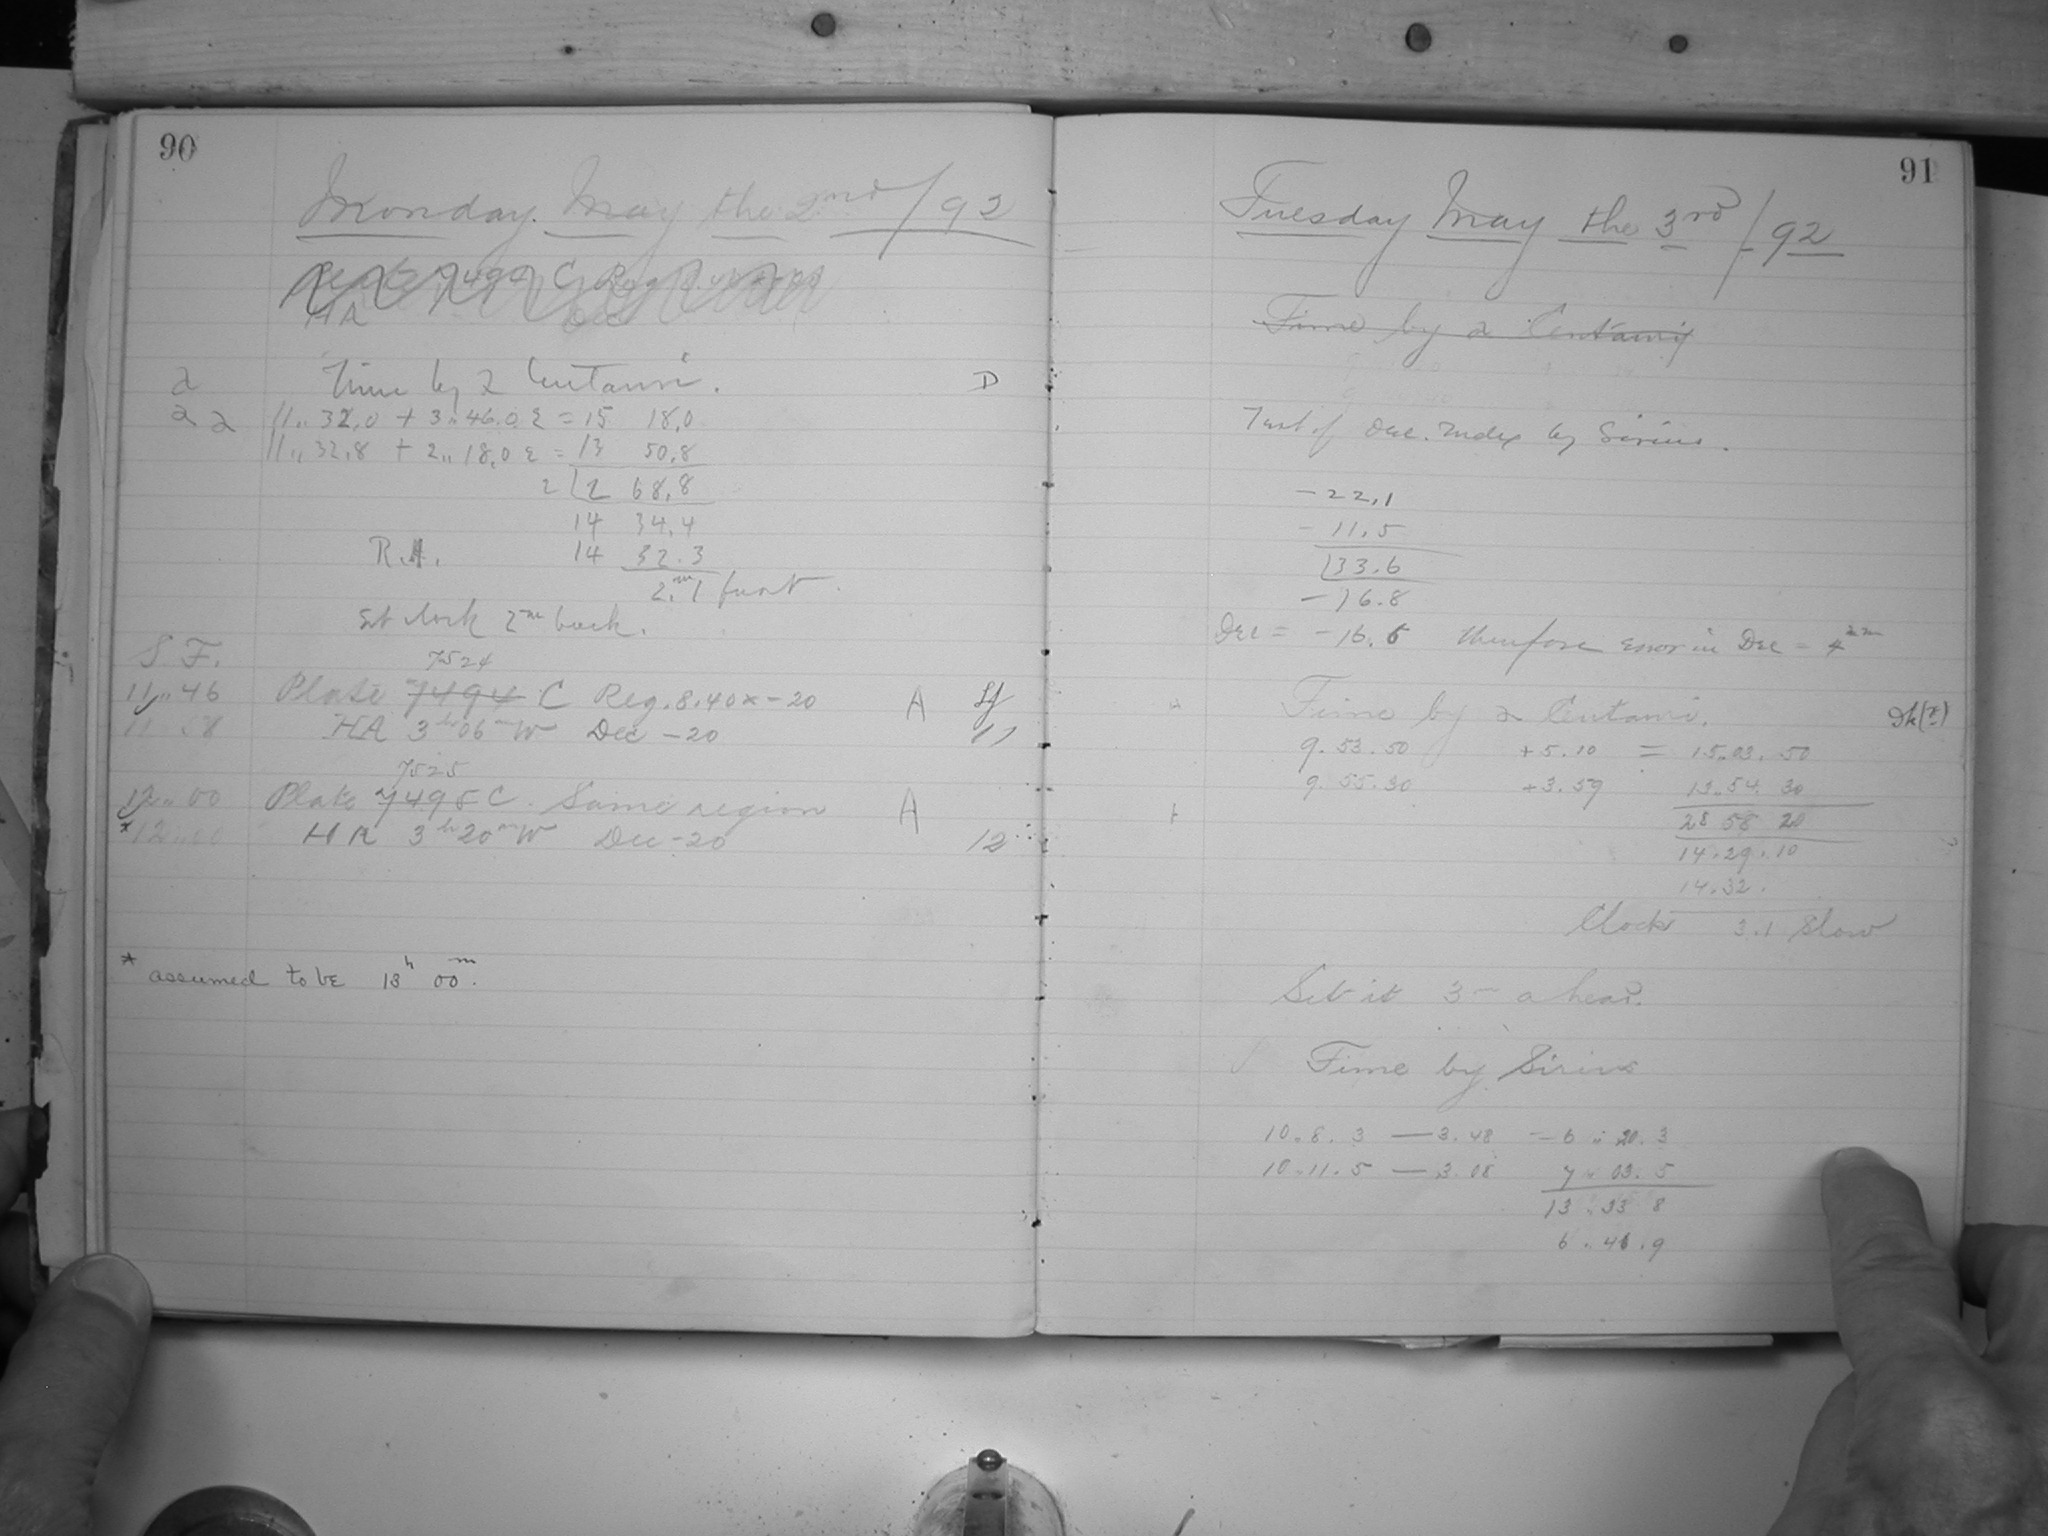 90
Monday May the 2nd/92
HA Dec
2 Time by 2 Centauri. D
2 2 11..32.0 + 3..46.0 ε = 15 18.0
11..32.8 + 2..18.0 ε = 13 50.8
2 | 2 68.8
14 34.4
R.A. 14 32.3
2.m1 fast
Set clock 2m back.
S F. 7524
11..46 Plate 7494 C Reg. 8.40x-20 A
11 58 HA 3h 06m W Dec -20 11
7525
12..00 Plate 7495 C. Same region A
*12..00 HA 3h 20m W Dec -20 12
* assumed to be 13h 00m.
91
Tuesday May the 3rd/92
Time by 2 Centauri
Test of Dec. Index by Sirius.
-22.1
-11.5
133.6
-16.8
Dec = -16.6 therefore error in Dec =
Time by 2 Centauri.
9.53.50 +5.10 = 15..03.50
9.55.30 +3.59 13..54.30
28 58 20
14.29.10
14.32.
Clock 3.1 Slow
Set it 3m ahead.
Time by Sirius
10..8.3 — 3.48 — 6..20.3
10..11.5 — 3.08 7..03.5
13..23 8
6..41.9